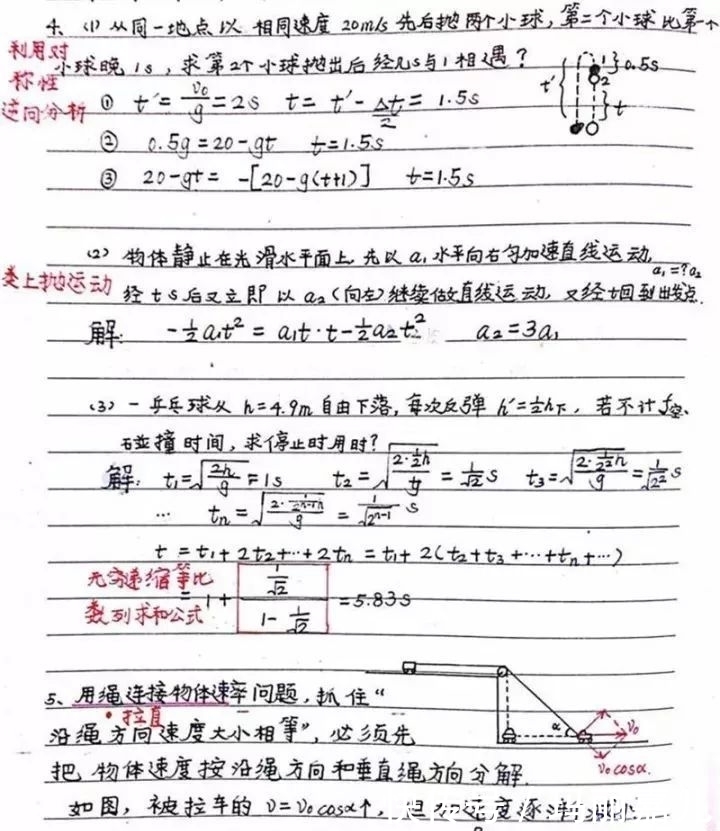 4、(1) 从同一地点以相同速度20m/s先后抛两个小球，第二个小球比第一个
小球晚1s，求第2个小球抛出后经几s与1相遇？
利用对
称性
逆向分析
① t'=v₀/g=2s t=t'-Δt/2=1.5s
② 0.5g=20-gt t=1.5s
③ 20-gt=-[20-g(t+1)] t=1.5s
t' 1 0.5s
2
t
(2) 物体静止在光滑水平面上，先以a₁水平向右匀加速直线运动，
类上抛运动
a₁=?a₂
经ts后又立即以a₂(向左)继续做直线运动，又经t回到出发点.
解: -½a₁t²=a₁t·t-½a₂t² a₂=3a₁
(3) 一乒乓球从h=4.9m自由下落，每次反弹h'=½h下，若不计f空、
碰撞时间，求停止时用时？
解: t₁=√(2h/g)=1s t₂=√(2·½h/g)=1/√2 s t₃=√(2·1/2²h/g)=1/√2² s
… tₙ=√(2·1/2ⁿ⁻¹h/g)=1/√2ⁿ⁻¹ s
t=t₁+2t₂+…+2tₙ=t₁+2(t₂+t₃+…+tₙ+…)
无穷递缩等比
数列求和公式
=1+ (1/√2)/(1-1/√2) =5.83s
5、用绳连接物体速率问题，抓住“
·拉直
沿绳方向速度大小相等”，必须先
把物体速度按沿绳方向和垂直绳方向分解.
α v₀
v₀cosα.
如图，被拉车的v=v₀cosα↑，